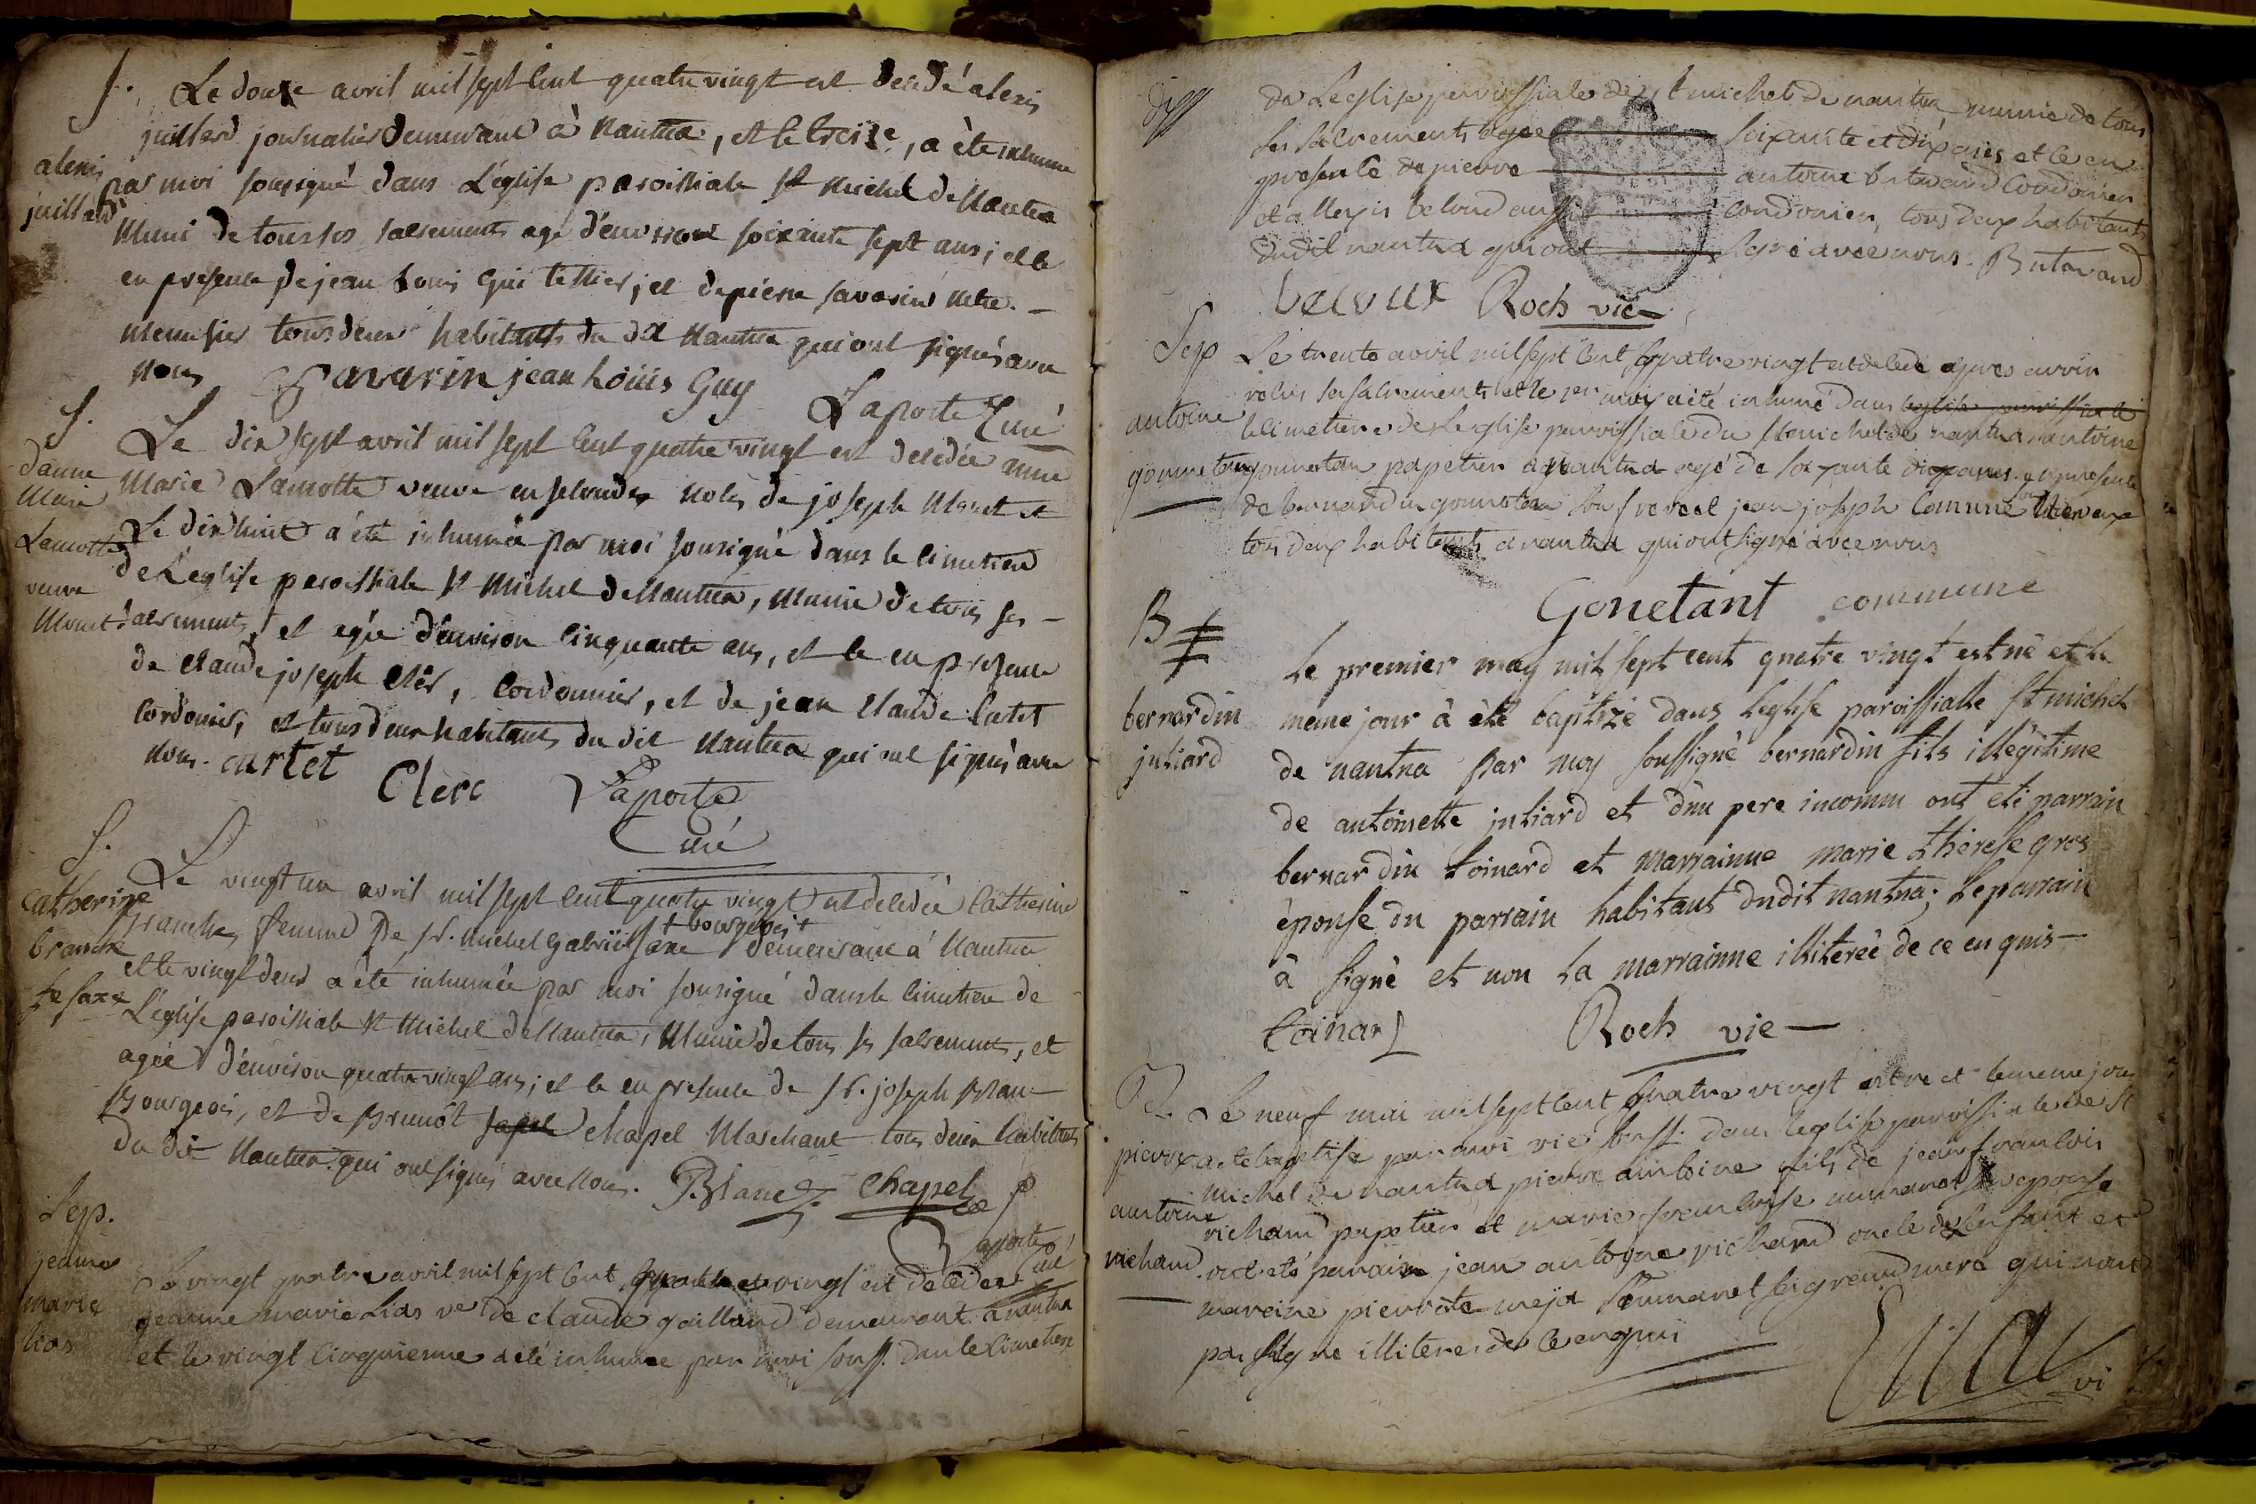 S.
Le douze avril mil sept cent quatre vingt est decedé alexis
juillard journalier demeurant à Nantua, et le treize, a été inhumé
alexis
juillard
par moi soussigné dans L'église paroissiale St Michel de Nantua
Muni de tous ses sacrements agé d'environ soixante sept ans; et ce
en présence de jean Louis Gui tessier, et de pierre savarin Mtre
Menusier tous deux habitants du dit Nantua qui ont signés avec
Nous Savarin jean Loüis Guy Laporte Curé
S.
Le dix sept avril mil sept cent quatre vingt est decedée
Marie Lamotte veuve en secondes noces de joseph Monet et
Marie
Lamotte
veuve
Monet
Le dix huit a été inhumée par moi sousigné dans le cimetiere
de L'eglise paroissiale St Michel de Nantua, Munie de tous ses
sacrements, et agée d'environ cinquante ans, et ce en présence
de Claude joseph Clér, Cordonnier, et de jean Claude Curtet
Cordonier, et tous deux habitants du dit Nantua qui ont signés avec
Nous. curtet Clerc Laporte
Curé
S.
Catherine
Le vingt un avril mil sept cent quatre vingt est decedée Catherine
Branche, femme De Sr. Michel Gabriel Saxe + bourgeois + demeurant à Nantua
et le vingt deux a été inhumée par moi sousigné dans le cimetiere de
L'église paroissiale St Michel de Nantua, Munie de tous ses sacrements, et
agée d'environ quatre vingt ans; et ce en presence de Sr. joseph Blanc
Bourgeois, et de Brunot chapel Marchant tous deux habitants
du dit Nantua qui ont signés avec Nous. Blanc Chapel
Laporte curé
Sep.
jeanne
marie
lias
Le vingt quatre avril mil sept cent quatre vingt est decedee
jeanne marie Lias ve de claude gaillard demeurant a nantua
et le vingt cinquieme a été inhumee par moi souss. dans le cimetiere
de L'eglise paroissiale de St michel de nantua, munie de tous
ses sacrements agee soixante et dix ans et ce en
presence de pierre antoine butavand Cordonier
et allexis beloud aussi Cordonier, tous deux habitants
dudit nantua qui ont signé avec nous. Butavand
Roch vic
Sep
antoine
Le trente avril mil sept cent quatre vingt est decedé apres avoir
recus ses sacrements et le 1er may a été inhumé dans leglise paroissiale
le cimetiere de L'eglise paroissiale du St michel de nantua antoine
papetier a nantua agé de soixante dix ans en presence
de bernardin son frere et jean joseph Comune
tous deux habitants a nantua qui ont signé avec nous
Gonetant commune
B
bernardin
juliard
Le premier may mil sept cent quatre vingt est né et le
meme jour à été baptizé dans L'eglise paroissialle St michel
de nantua par moy soussigné bernardin fils illégitime
de antoinette juliard et d'un pere inconnu ont eté parrain
bernardin toinard et marrainne marie thérèse gros
épouse du parrain habitant dudit nantua; Le parrain
à signé et non La marrainne illiterée de ce enquis
toinard Roch vic
pierre
antoine
richard
Le neuf mai mil sept cent quatre vingt est ne et le meme jour
a ete baptise par moi vic souss. dans leglise paroissiale de St
michel de nantua pierre antoine fils de jean francois
richard papetier et marie francoise sa epouse
ont eté parrain jean antoine richard oncle de lenfant et
mareine pierrette sa grand mere qui nont
pas signe illiteres de ce enquis
vi